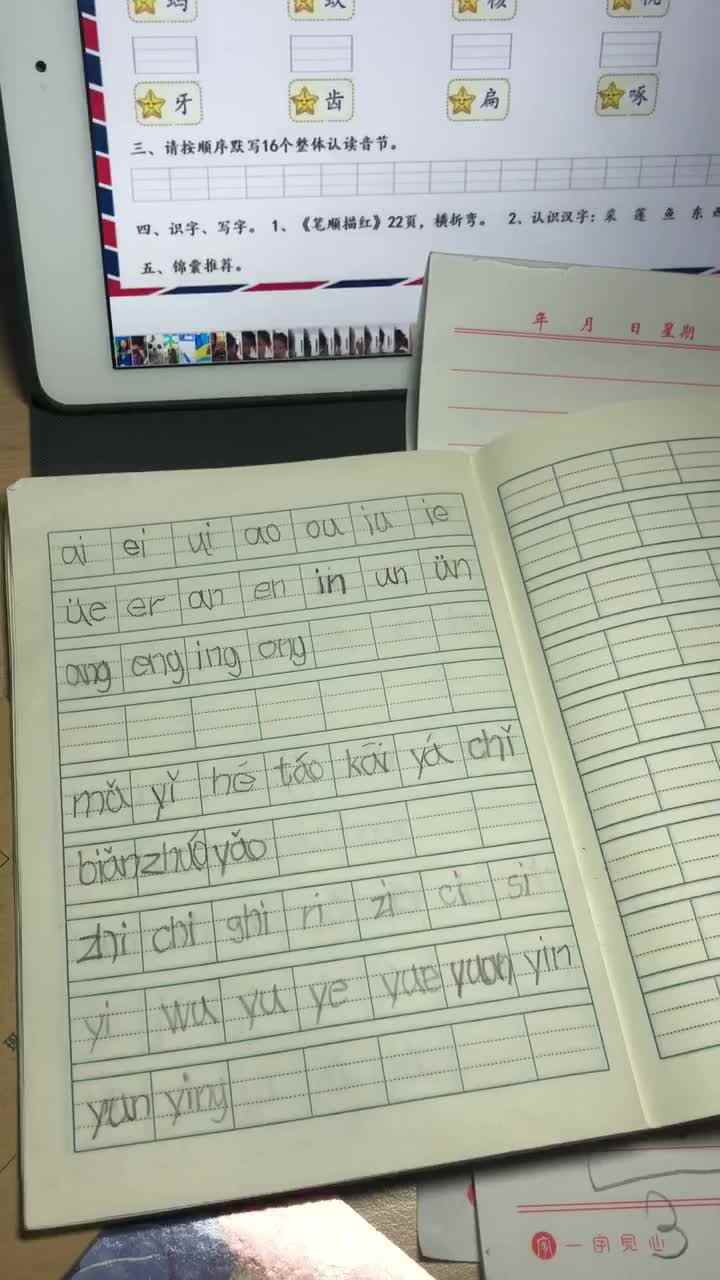 牙 齿 扁 啄
三、请按顺序默写16个整体认读音节。
四、识字、写字。 1、《笔顺描红》22页，横折弯。 2、认识汉字：采 莲 鱼 东
五、锦囊推荐。
年 月 日 星期
ai ei ui ao ou iu ie
üe er an en in un ün
ang eng ing ong
mǎ yǐ hé táo kāi yá chǐ
biǎn zhuó yǎo
zhi chi ghi ri zi ci si
yi wu yu ye yue yuan yin
yun ying
一字见心
3